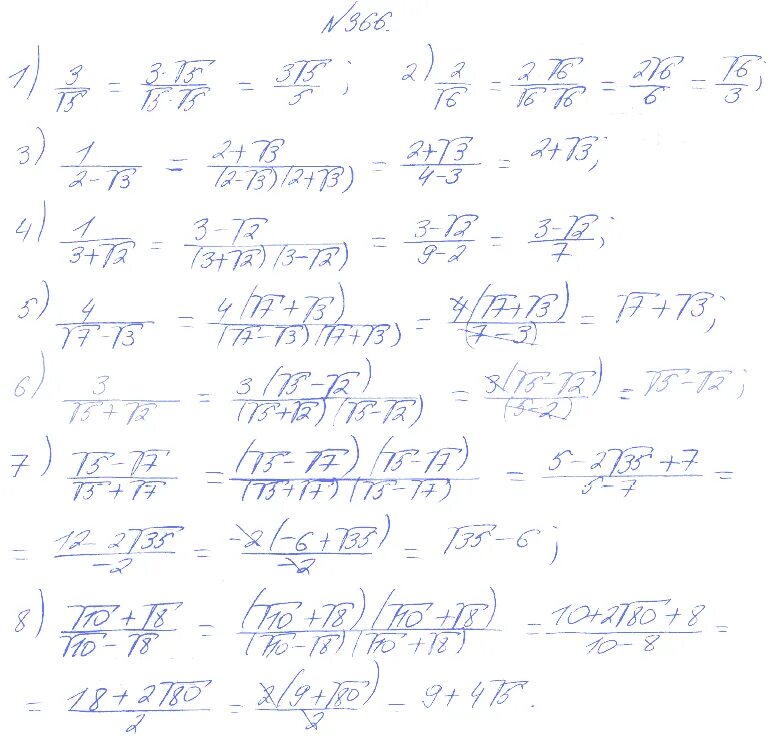 №366.
1) 3/√5 = 3·√5/√5·√5 = 3√5/5 ; 2) 2/√6 = 2√6/√6 √6 = 2√6/6 = √6/3 ;
3) 1/2-√3 = 2+√3/(2-√3)(2+√3) = 2+√3/4-3 = 2+√3 ;
4) 1/3+√2 = 3-√2/(3+√2)(3-√2) = 3-√2/9-2 = 3-√2/7 ;
5) 4/√7-√3 = 4(√7+√3)/(√7-√3)(√7+√3) = 4(√7+√3)/(7-3) = √7+√3 ;
6) 3/√5+√2 = 3(√5-√2)/(√5+√2)(√5-√2) = 3(√5-√2)/(5-2) = √5-√2 ;
7) √5-√7/√5+√7 = (√5-√7)(√5-√7)/(√5+√7)(√5-√7) = 5-2√35+7/5-7 =
= 12-2√35/-2 = -2(-6+√35)/-2 = √35-6 ;
8) √10+√8/√10-√8 = (√10+√8)(√10+√8)/(√10-√8)(√10+√8) = 10+2√80+8/10-8 =
= 18+2√80/2 = 2(9+√80)/2 = 9+4√5.